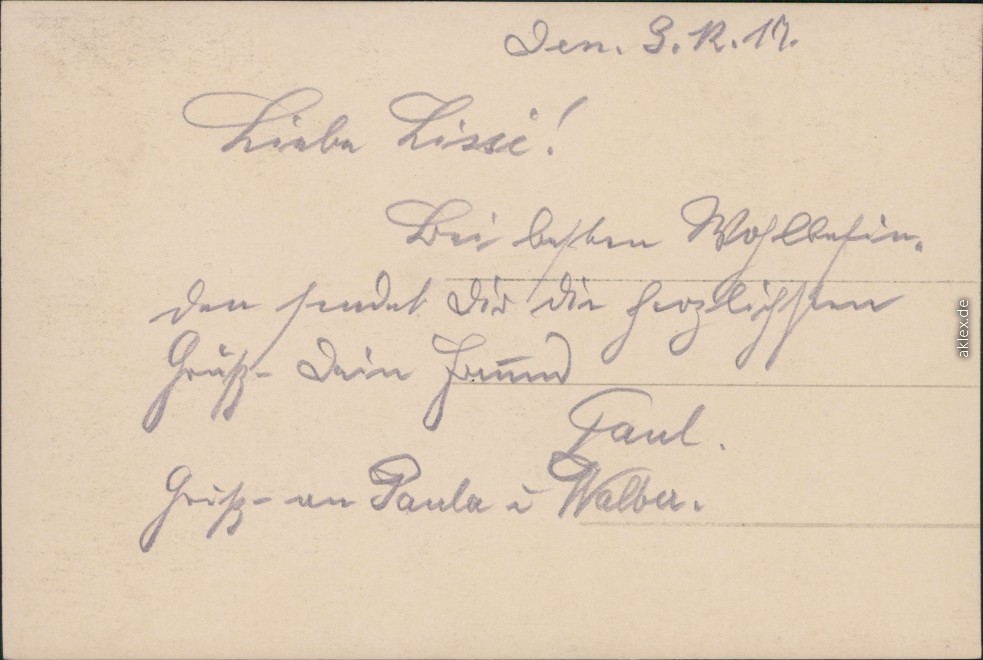 Den. 9.12.17.
Liebe Lissi!
Bei besten Wohlbefin-
den sendet Dir die herzlichsten
Grüße Dein Freund
Paul.
Grüße an Paula u
aklex.de